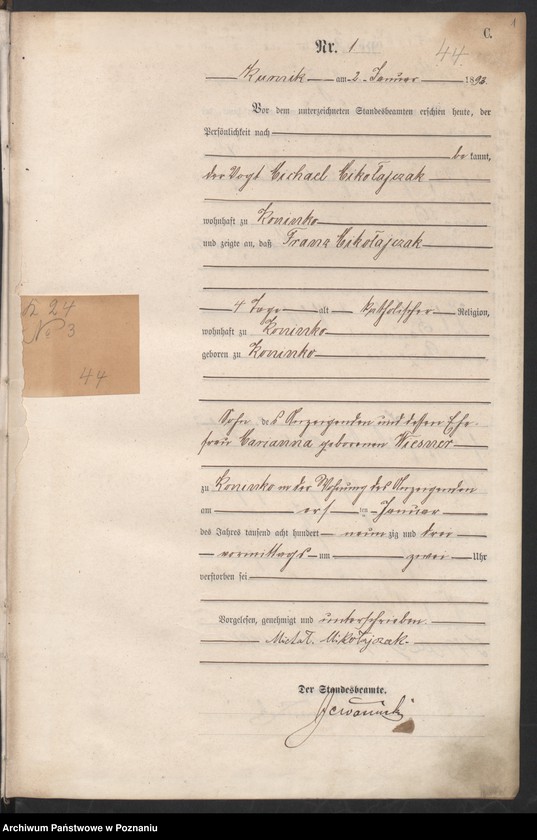 1
C.
Nr. 1
44.
Kurnik am 2. Januar 1893.
Vor dem unterzeichneten Standesbeamten erschien heute, der
Persönlichkeit nach
be kannt,
der Vogt Michael Mikołajczak
wohnhaft zu Koninko
und zeigte an, daß Franz Mikołajczak
4 Tage alt katholischer Religion,
wohnhaft zu Koninko
geboren zu Koninko
Sohn des Anzeigenden und dessen Ehe-
frau Marianna geborenen Wiesner
zu Koninko in der Wohnung des Anzeigenden
am ersten Januar
des Jahres tausend acht hundert neunzig und drei
vormittags um zwei Uhr
verstorben sei
Vorgelesen, genehmigt und unterschrieben.
Michał. Mikołajczak.
Der Standesbeamte.
24
No 3
44
Archiwum Państwowe w Poznaniu